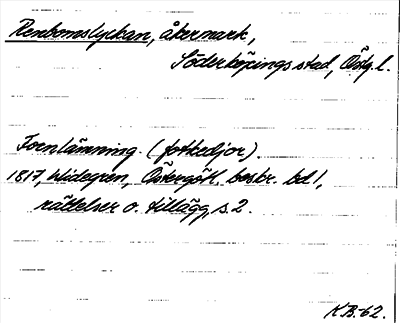 Renbomslyckan, åkermark,
Söderköpings stad, Östg. l.
Fornlämning. (fotkedjor).
1817, Widegren, Östergötl. beskr. bd 1,
rättelser o. tillägg, s. 2.
KB-62.